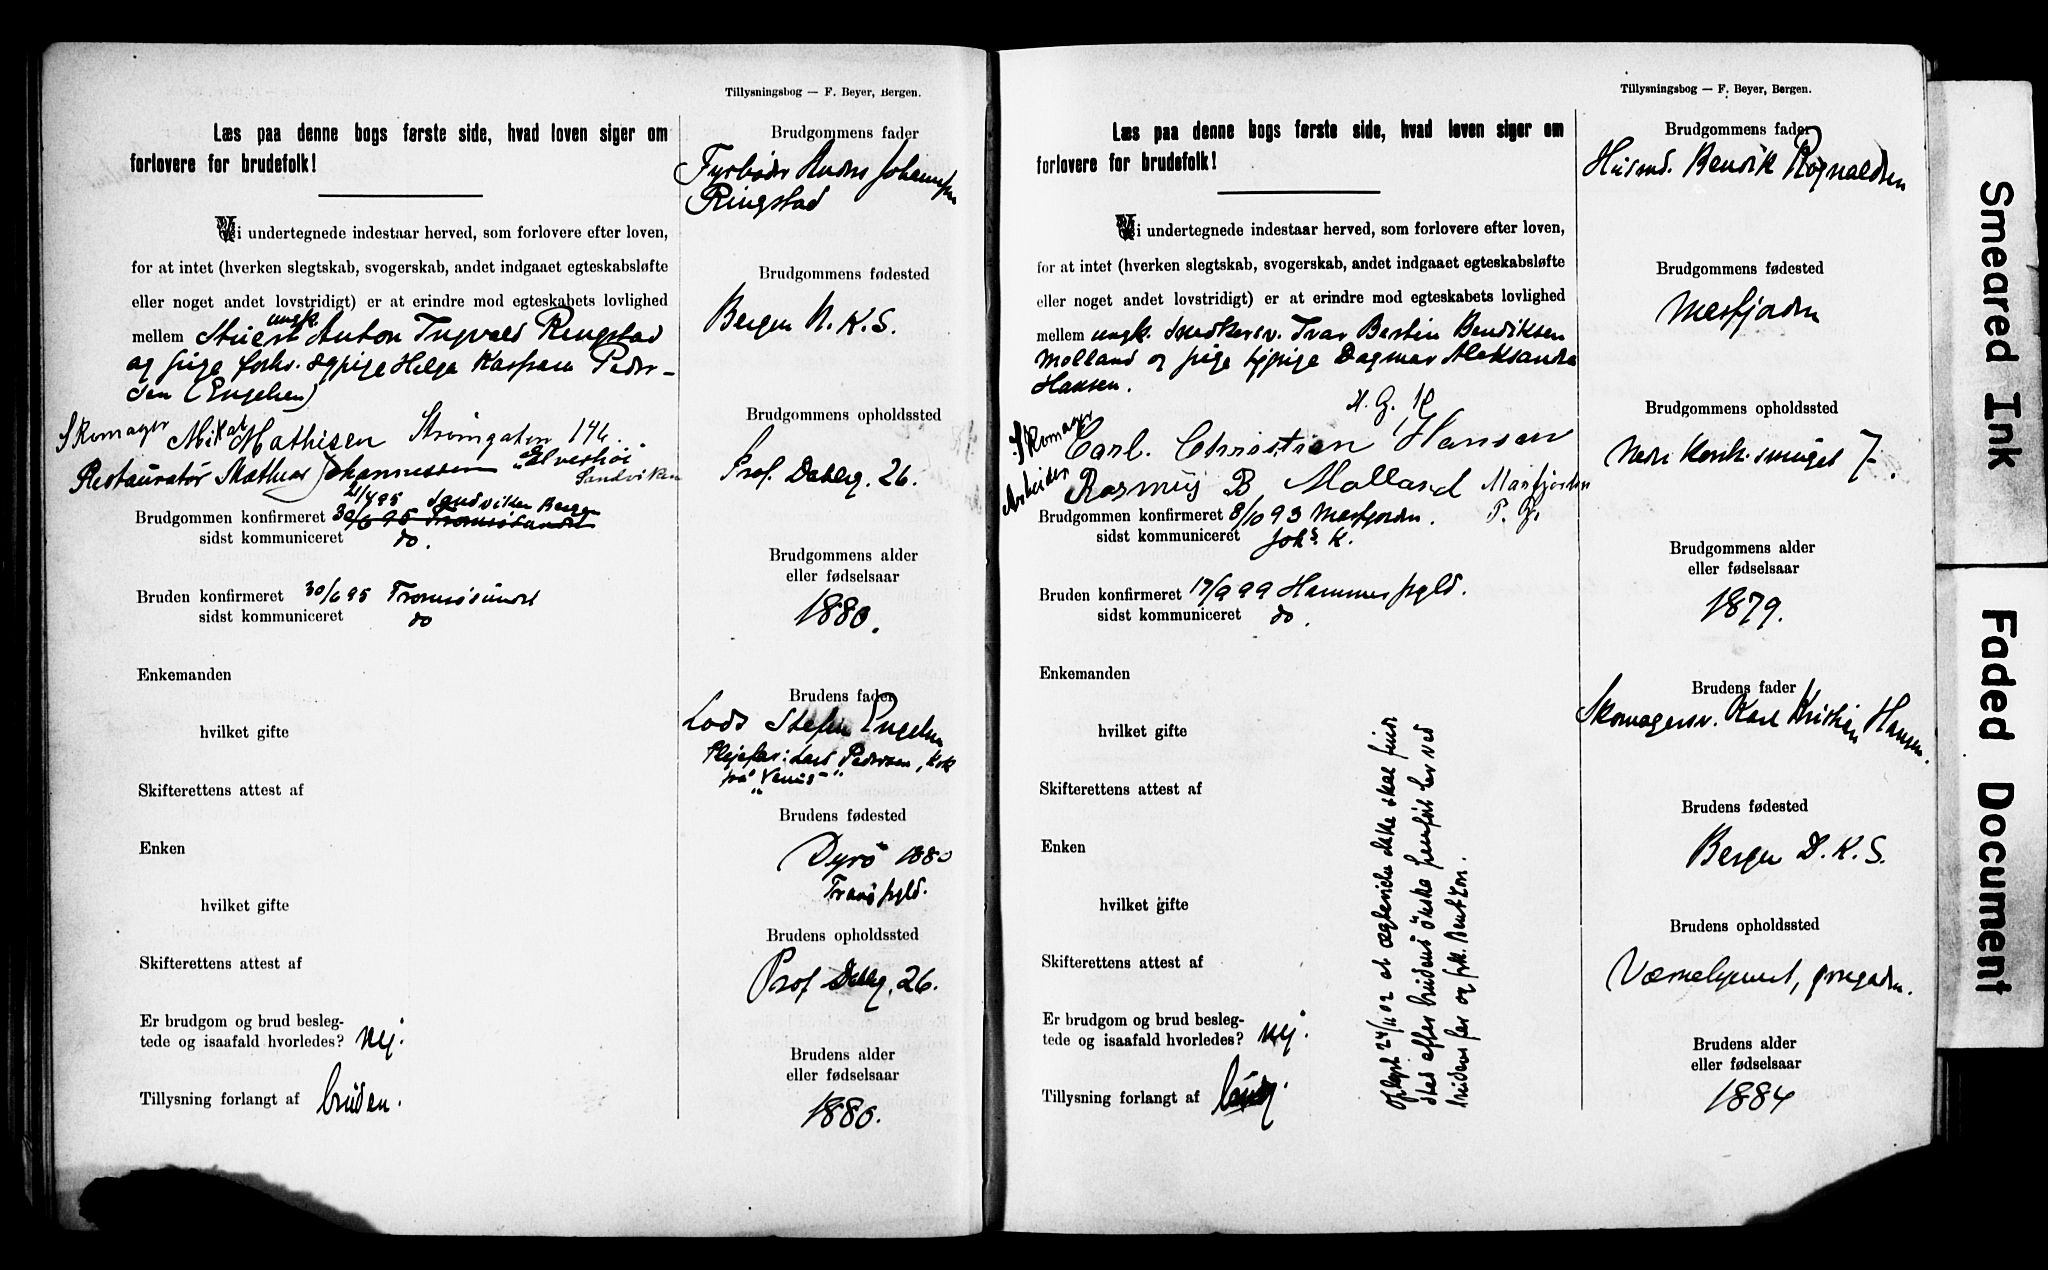 Tillysningsbog — F. Beyer, Bergen.
Læs paa denne bogs første side, hvad loven siger om
forlovere for brudefolk!
Vi undertegnede indestaar herved, som forlovere efter loven,
for at intet (hverken slegtskab, svogerskab, andet indgaaet egteskabsløfte
eller noget andet lovstridigt) er at erindre mod egteskabets lovlighed
ungk.
mellem Stuert Anton Ingvald Ringstad
og pige forhv. Helga Kaspara Peder-
sen (Engelsen)
Skomager Mikal Mathisen Strømgaten 146.
Restauratør Mathias Johannessen Elveshøi
Sandviken
21/4 95 Sandviken Bergen
Brudgommen konfirmeret 30/6 95 Tromsøsundet
sidst kommuniceret do.
Bruden konfirmeret 30/6 95 Tromsøsundet
sidst kommuniceret do
Enkemanden
hvilket gifte
Skifterettens attest af
Enken
hvilket gifte
Skifterettens attest af
Er brudgom og brud besleg-
tede og isaafald hvorledes? Nej.
Tillysning forlangt af bruden.
Brudgommens fader
Fyrbøder Anders Johannessen
Ringstad
Brudgommens fødested
Bergen N. K. S.
Brudgommens opholdssted
Prof. Dahlsg. 26.
Brudgommens alder
eller fødselsaar
1880.
Brudens fader
Lods Stefen Engelsen
Plejefar: Lars Pedersen, Kok
fra "Venus"
Brudens fødested
Dyrø 1880
Tranø pgld.
Brudens opholdssted
Prof Dahlsg. 26.
Brudens alder
eller fødselsaar
1880.
Tillysningsbog — F. Beyer, Bergen.
Læs paa denne bogs første side, hvad loven siger om
forlovere for brudefolk!
Vi undertegnede indestaar herved, som forlovere efter loven,
for at intet (hverken slegtskab, svogerskab, andet indgaaet egteskabsløfte
eller noget andet lovstridigt) er at erindre mod egteskabets lovlighed
mellem ungk. Snedkersv. Ivar Bertin Bendiksen
Molland og pige tjpige Dagmar Aleksandra
Hansen.
Skomager Carl Christian Hansen
Arbeider Rasmus B Molland Masfjorden
P. G.
Brudgommen konfirmeret 8/10 93 Masfjorden.
sidst kommuniceret Johs. K.
Bruden konfirmeret 17/9 99 Hammer pgld.
sidst kommuniceret do.
Enkemanden
hvilket gifte
Skifterettens attest af
Enken
hvilket gifte
Skifterettens attest af
Er brudgom og brud besleg-
tede og isaafald hvorledes? Nej.
Tillysning forlangt af
Oplyst 24/11 02 at ægtevielse ikke skal finde
sted efter brudens ønske henført her ved
brudens far og frk. Bentzon.
Brudgommens fader
Husmd. Bendik Rognaldsen
Brudgommens fødested
Masfjorden
Brudgommens opholdssted
Nedre Korsk. smuget 7.
Brudgommens alder
eller fødselsaar
1879.
Brudens fader
Skomagersv. Karl Kristian Hansen.
Brudens fødested
Bergen D. K. S.
Brudens opholdssted
Værnehjemmet,
Brudens alder
eller fødselsaar
1884
Smeared Ink
Faded Document